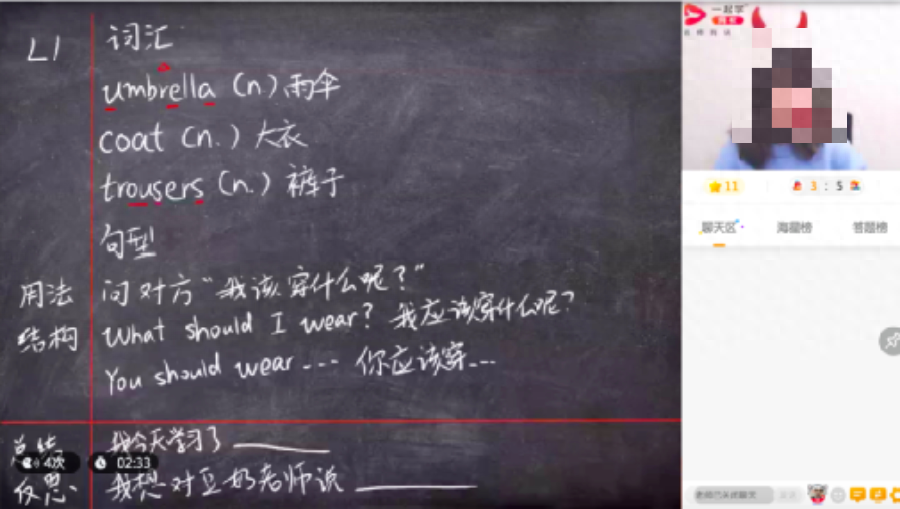 L1
词汇
umbrella (n.) 雨伞
coat (n.) 大衣
trousers (n.) 裤子
句型
用法
问对方"我该穿什么呢?"
结构
What should I wear? 我应该穿什么呢?
You should wear --- 你应该穿---
总结
我今天学习了
4次
02:33
反思
我想对豆奶老师说
一起学
11
3 : 5
聊天区
答题榜